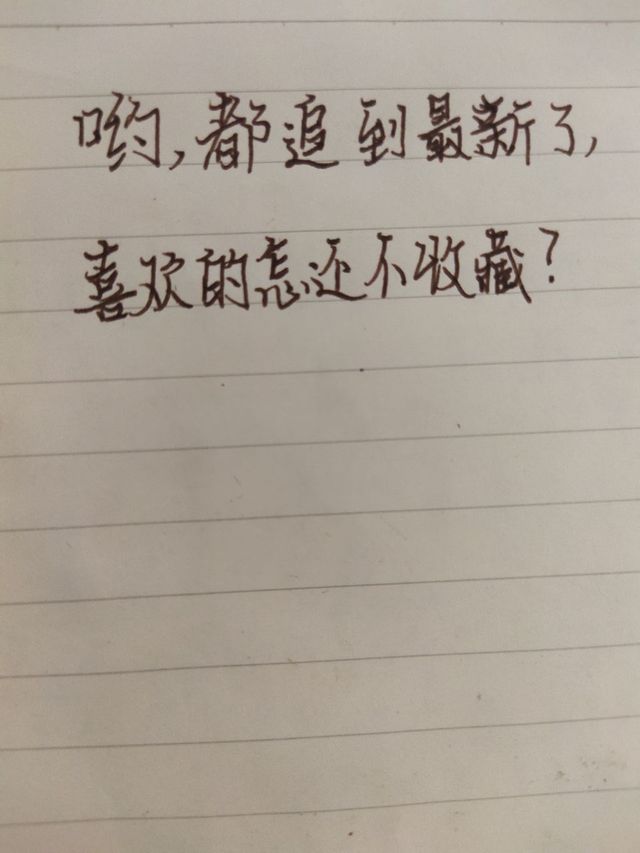 哟,都追到最新了,
喜欢的怎还不收藏?